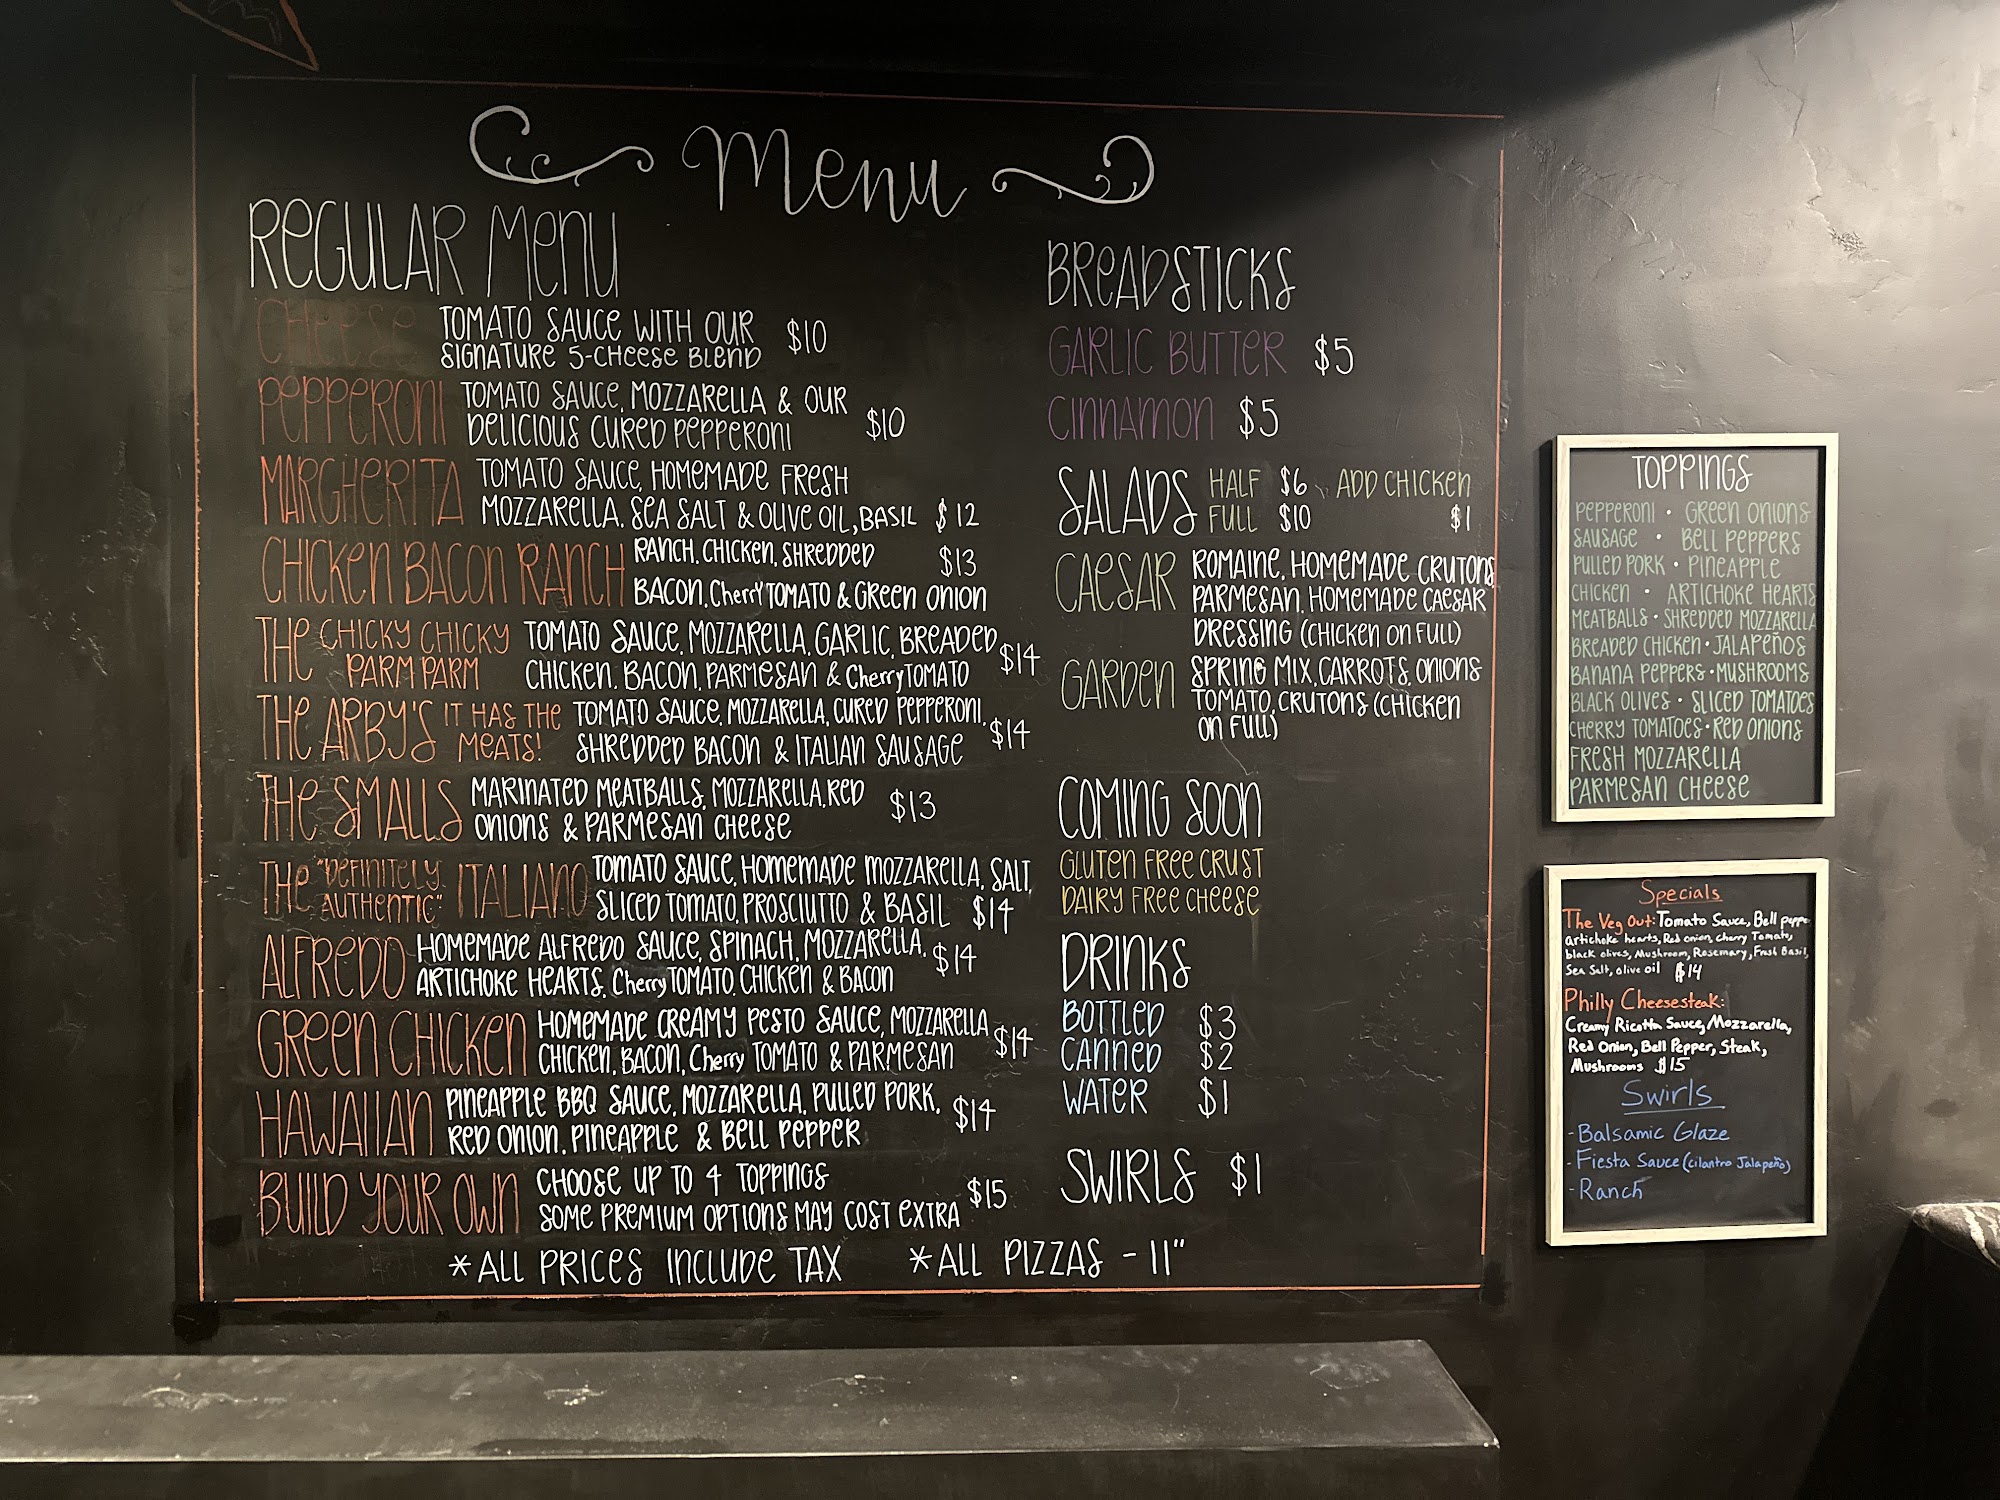 Menu
REGULAR MENU
CHEESE TOMATO SAUCE WITH OUR $10
SIGNATURE 5-CHEESE BLEND
PEPPERONI TOMATO SAUCE, MOZZARELLA & OUR $10
DELICIOUS CURED PEPPERONI
MARGHERITA TOMATO SAUCE, HOMEMADE FRESH
MOZZARELLA, SEA SALT & OLIVE OIL, BASIL $12
CHICKEN BACON RANCH RANCH, CHICKEN, SHREDDED $13
BACON, Cherry TOMATO & GREEN ONION
THE CHICKY CHICKY PARM PARM TOMATO SAUCE, MOZZARELLA, GARLIC, BREADED $14
CHICKEN, BACON, PARMESAN & Cherry TOMATO
THE ARBY'S IT HAS THE MEATS! TOMATO SAUCE, MOZZARELLA, CURED PEPPERONI, $14
SHREDDED BACON & ITALIAN SAUSAGE
THE SMALLS MARINATED MEATBALLS, MOZZARELLA, RED $13
ONIONS & PARMESAN CHEESE
THE "DEFINITELY AUTHENTIC" ITALIANO TOMATO SAUCE, HOMEMADE MOZZARELLA, SALT,
SLICED TOMATO, PROSCIUTTO & BASIL $14
ALFREDO HOMEMADE ALFREDO SAUCE, SPINACH, MOZZARELLA, $14
ARTICHOKE HEARTS, Cherry TOMATO, CHICKEN & BACON
GREEN CHICKEN HOMEMADE CREAMY PESTO SAUCE, MOZZARELLA $14
CHICKEN, BACON, Cherry TOMATO & PARMESAN
HAWAIIAN PINEAPPLE BBQ SAUCE, MOZZARELLA, PULLED PORK, $14
RED ONION, PINEAPPLE & BELL PEPPER
BUILD YOUR OWN CHOOSE UP TO 4 TOPPINGS $15
SOME PREMIUM OPTIONS MAY COST EXTRA
*ALL PRICES INCLUDE TAX *ALL PIZZAS - 11"
BREADSTICKS
GARLIC BUTTER $5
CINNAMON $5
SALADS HALF $6 ADD CHICKEN
FULL $10 $1
CAESAR ROMAINE, HOMEMADE CRUTONS
PARMESAN, HOMEMADE CAESAR
DRESSING (CHICKEN ON FULL)
GARDEN SPRING MIX, CARROTS, ONIONS
TOMATO, CRUTONS (CHICKEN
ON FULL)
COMING SOON
GLUTEN FREE CRUST
DAIRY FREE CHEESE
DRINKS
BOTTLED $3
CANNED $2
WATER $1
SWIRLS $1
TOPPINGS
PEPPERONI • GREEN ONIONS
SAUSAGE • BELL PEPPERS
PULLED PORK • PINEAPPLE
CHICKEN • ARTICHOKE HEARTS
MEATBALLS • SHREDDED MOZZARELLA
BREADED CHICKEN • JALAPEÑOS
BANANA PEPPERS • MUSHROOMS
BLACK OLIVES • SLICED TOMATOES
CHERRY TOMATOES • RED ONIONS
FRESH MOZZARELLA
PARMESAN CHEESE
Specials
The Veg Out: Tomato Sauce, Bell peppe
artichoke hearts, Red onion, cherry Tomato,
black olives, Mushroom, Rosemary, Fresh Basil,
Sea Salt, olive oil $14
Philly Cheesesteak:
Creamy Ricotta Sauce, Mozzarella,
Red Onion, Bell Pepper, Steak,
Mushrooms $15
Swirls
- Balsamic Glaze
- Fiesta Sauce (cilantro Jalapeño)
- Ranch